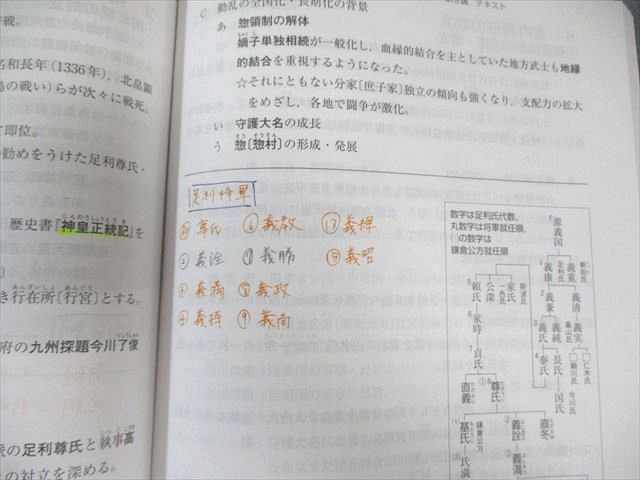 戦。
名和長年(1336年),北畠顕
島の戦い)らが次々に戦死。
て即位。
の勧めをうけた足利尊氏・
歴史書『神皇正統記』を
き行在所〔行宮〕とする。
府の九州探題今川了俊
派の足利尊氏と執事高
の対立を深める。
テキスト
C 動乱の全国化・長期化の背景
あ 惣領制の解体
嫡子単独相続が一般化し,血縁的結合を主としていた地方武士も地縁
的結合を重視するようになった。
☆それにともない分家〔庶子家〕独立の傾向も強くなり,支配力の拡大
をめざし,各地で闘争が激化。
い 守護大名の成長
う 惣〔惣村〕の形成・発展
足利将軍
尊氏 ⑥義教 ⑬義輝
②義詮 ⑦義勝 ⑮義昭
義満 ⑧義政
④義持 ⑨義尚
数字は足利氏代数,
丸数字は将軍就任順,
( )の数字は
鎌倉公方就任順
源義国
新田氏
義重
足利氏
義康
義清
義兼
義実
畠山氏
義純
義氏
仁木氏
細川氏
泰氏
長氏
国氏
今川氏
斯波氏
家氏
公深
頼氏
家時
貞氏
尊氏
直義
直冬
義詮
義満
鎌倉公方
基氏
氏満